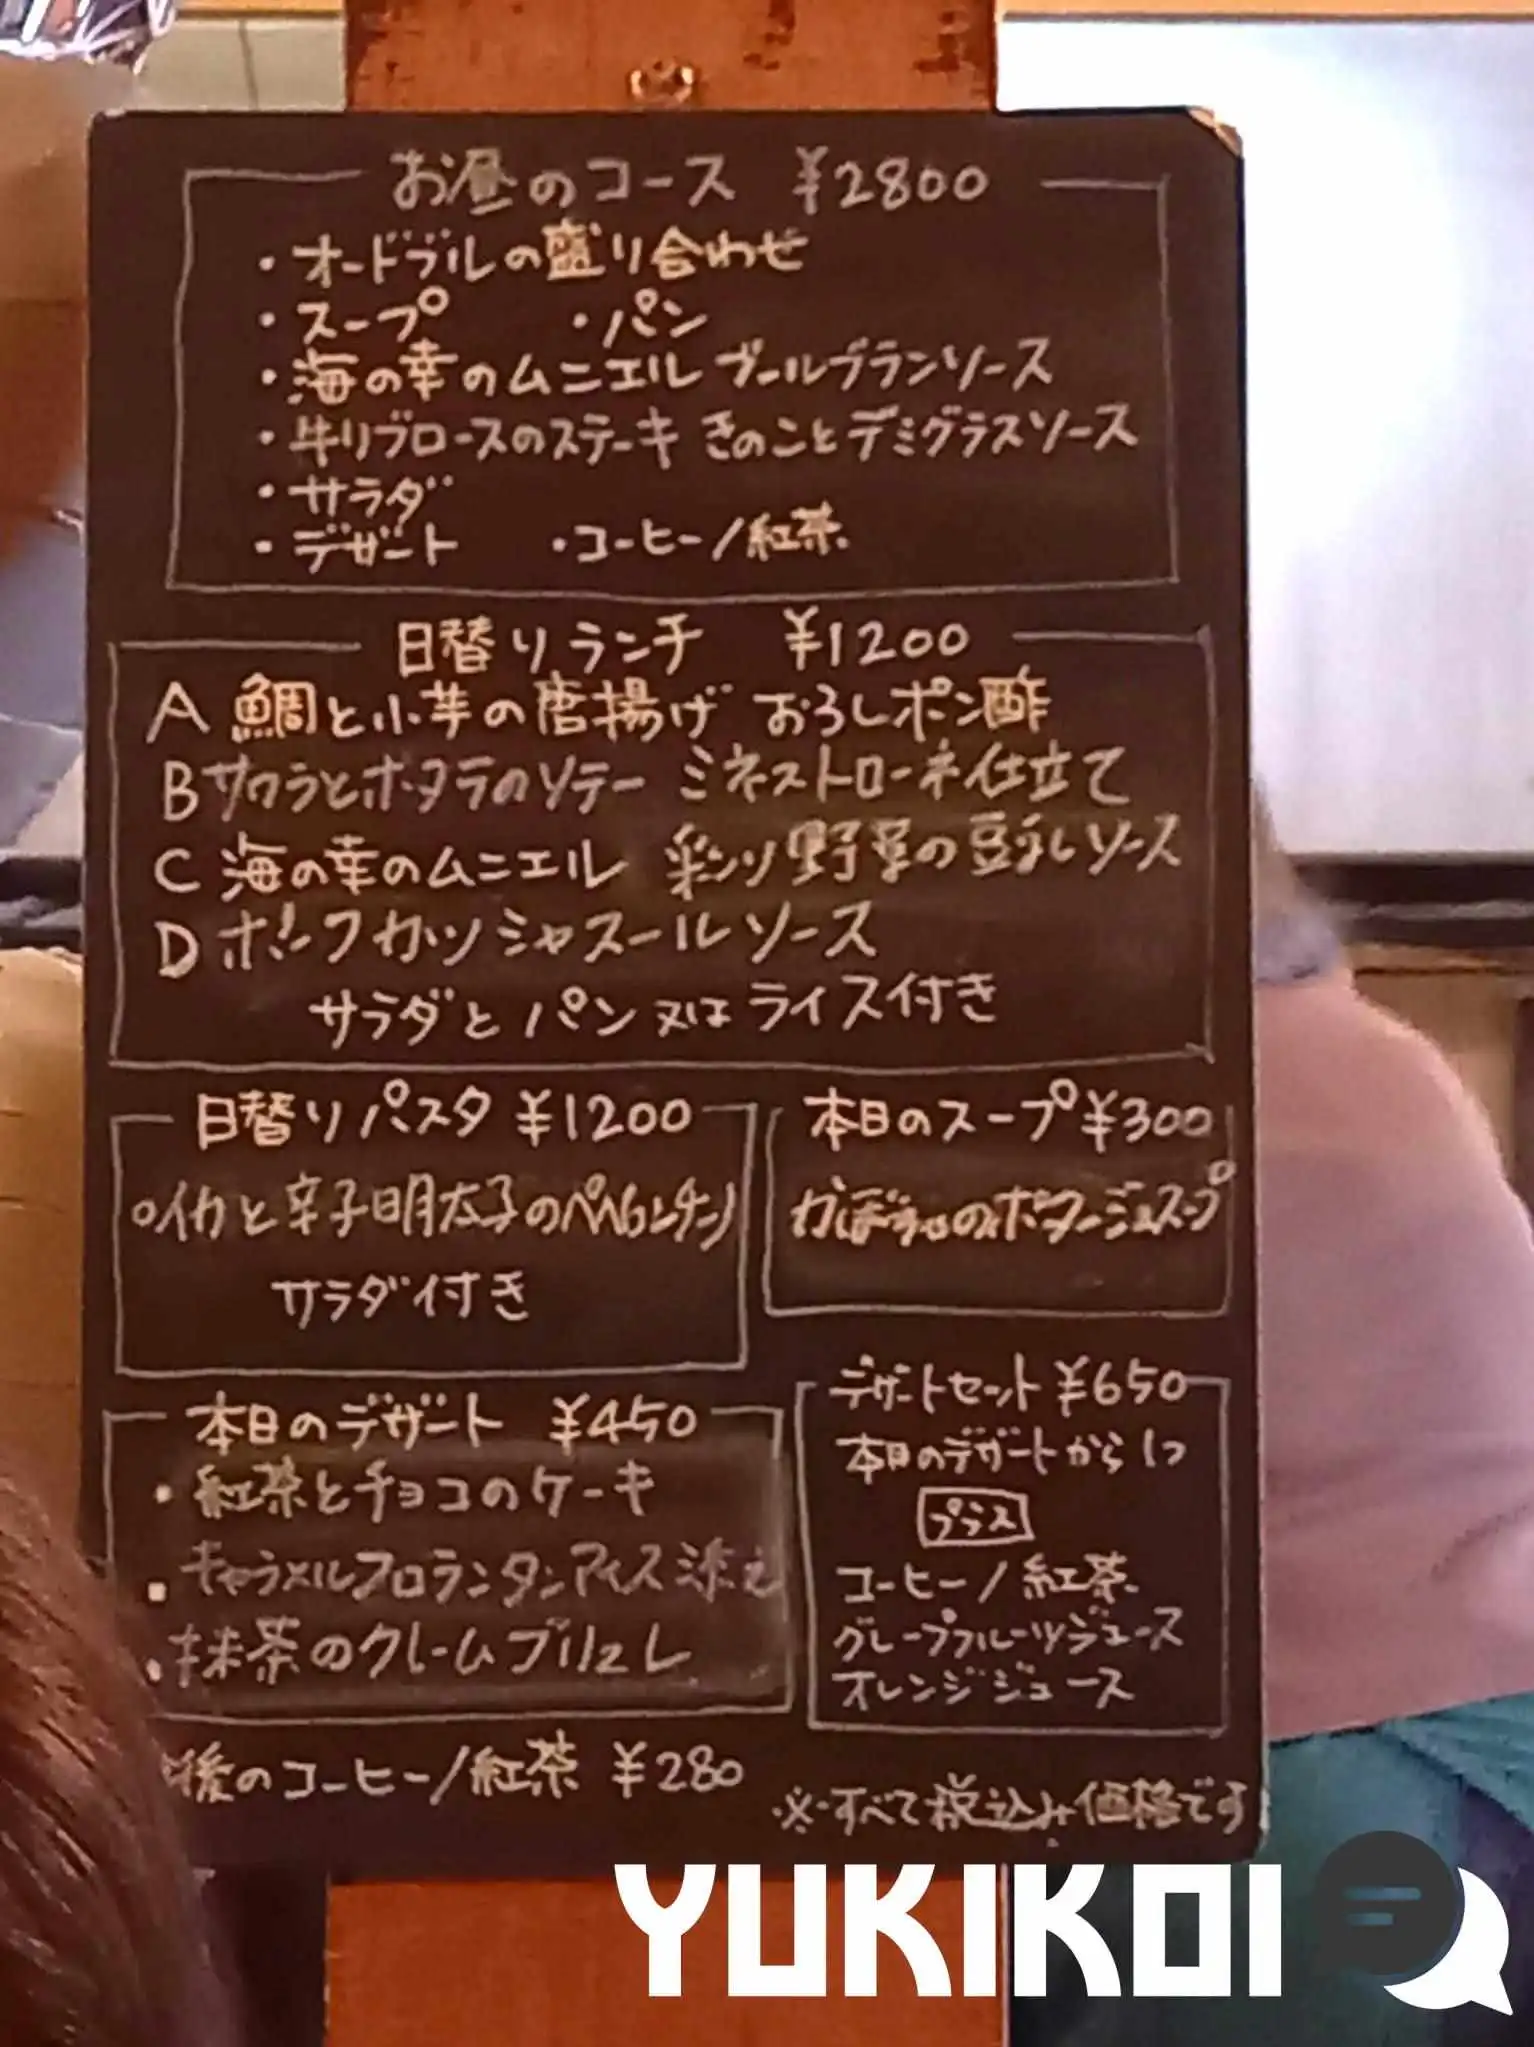 お昼のコース ¥2800
・オードブルの盛り合わせ
・スープ ・パン
・海の幸のムニエル ブールブランソース
・牛リブロースのステーキ きのことデミグラスソース
・サラダ
・デザート ・コーヒー/紅茶
日替りランチ ¥1200
A 鯛と小芋の唐揚げ おろしポン酢
B サワラとホタテのソテー ミネストローネ仕立て
C 海の幸のムニエル 彩り野菜の豆乳ソース
D ポークカツ シャスールソース
サラダとパン又はライス付き
日替りパスタ ¥1200
○イカと辛子明太子のペペロンチーノ
サラダ付き
本日のスープ ¥300
かぼちゃのポタージュスープ
本日のデザート ¥450
・紅茶とチョコのケーキ
・キャラメルフロランタンアイス添え
・抹茶のクレームブリュレ
デザートセット ¥650
本日のデザートから1つ
プラス
コーヒー/紅茶
グレープフルーツジュース
オレンジジュース
後のコーヒー/紅茶 ¥280
※すべて税込み価格です
YUKIKOI